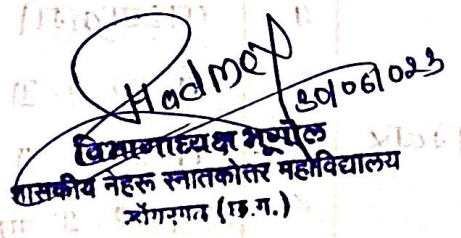 30/06/023
विभागाध्यक्ष भूगोल
शासकीय नेहरू स्नातकोत्तर महाविद्यालय
डोंगरगढ़ (छ.ग.)